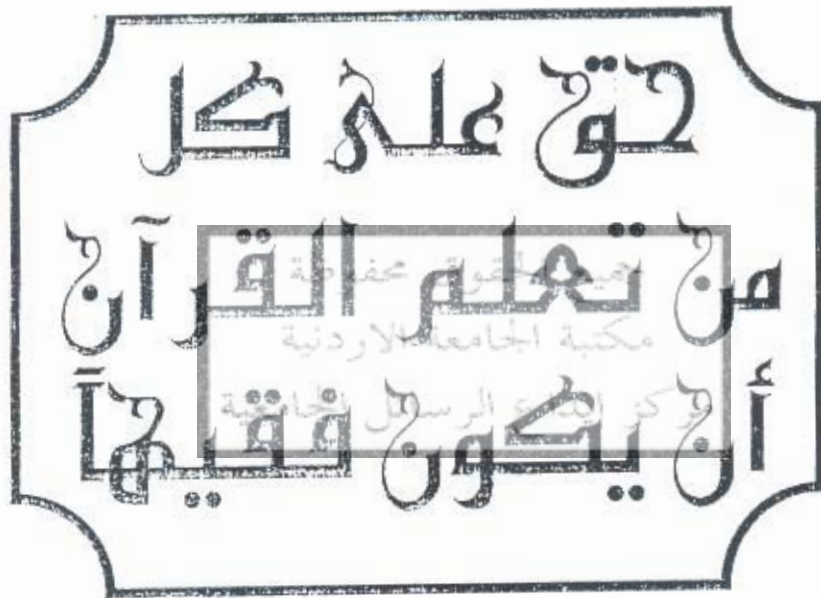 حق على كل
من تعلم القرآن
أن يكون فقيهاً
جميع الحقوق محفوظة
مكتبة الجامعة الاردنية
مركز ايداع الرسائل الجامعية